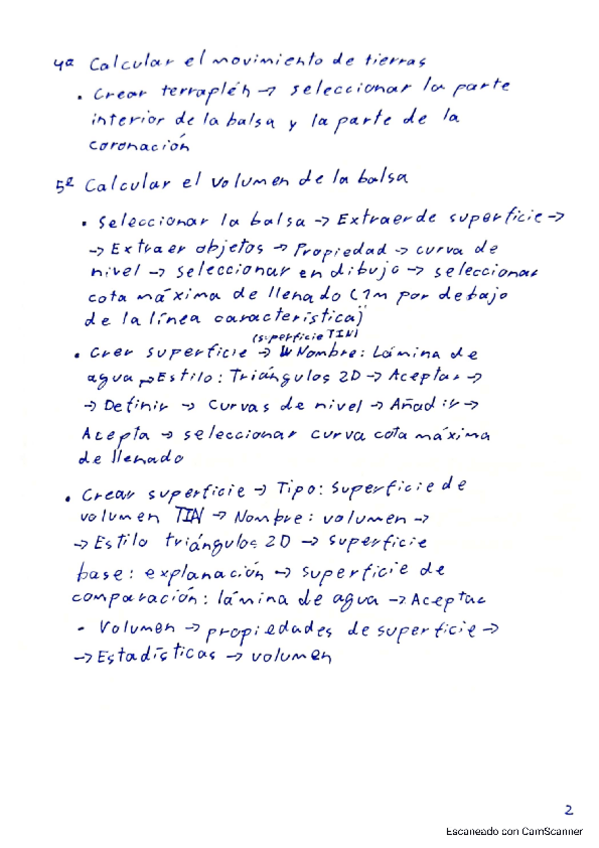 4ª Calcular el movimiento de tierras
• Crear terraplén → seleccionar la parte
interior de la balsa y la parte de la
coronación
5ª Calcular el volumen de la balsa
• Seleccionar la balsa → Extraer de superficie →
→ Extraer objetos → Propiedad → curva de
nivel → seleccionar en dibujo → seleccionar
cota máxima de llenado (1m por debajo
de la línea característica)
(superficie TIN)
• Crer superficie → Nombre: Lámina de
agua → Estilo: Triángulos 2D → Aceptar →
→ Definir → Curvas de nivel → Añadir →
Acepta → seleccionar curva cota máxima
de llenado
• Crear superficie → Tipo: Superficie de
volumen TIN → Nombre: volumen →
→ Estilo triángulos 2D → superficie
base: explanación → superficie de
comparación: lámina de agua → Aceptar
• Volumen → propiedades de superficie →
→ Estadísticas → volumen
2
Escaneado con CamScanner